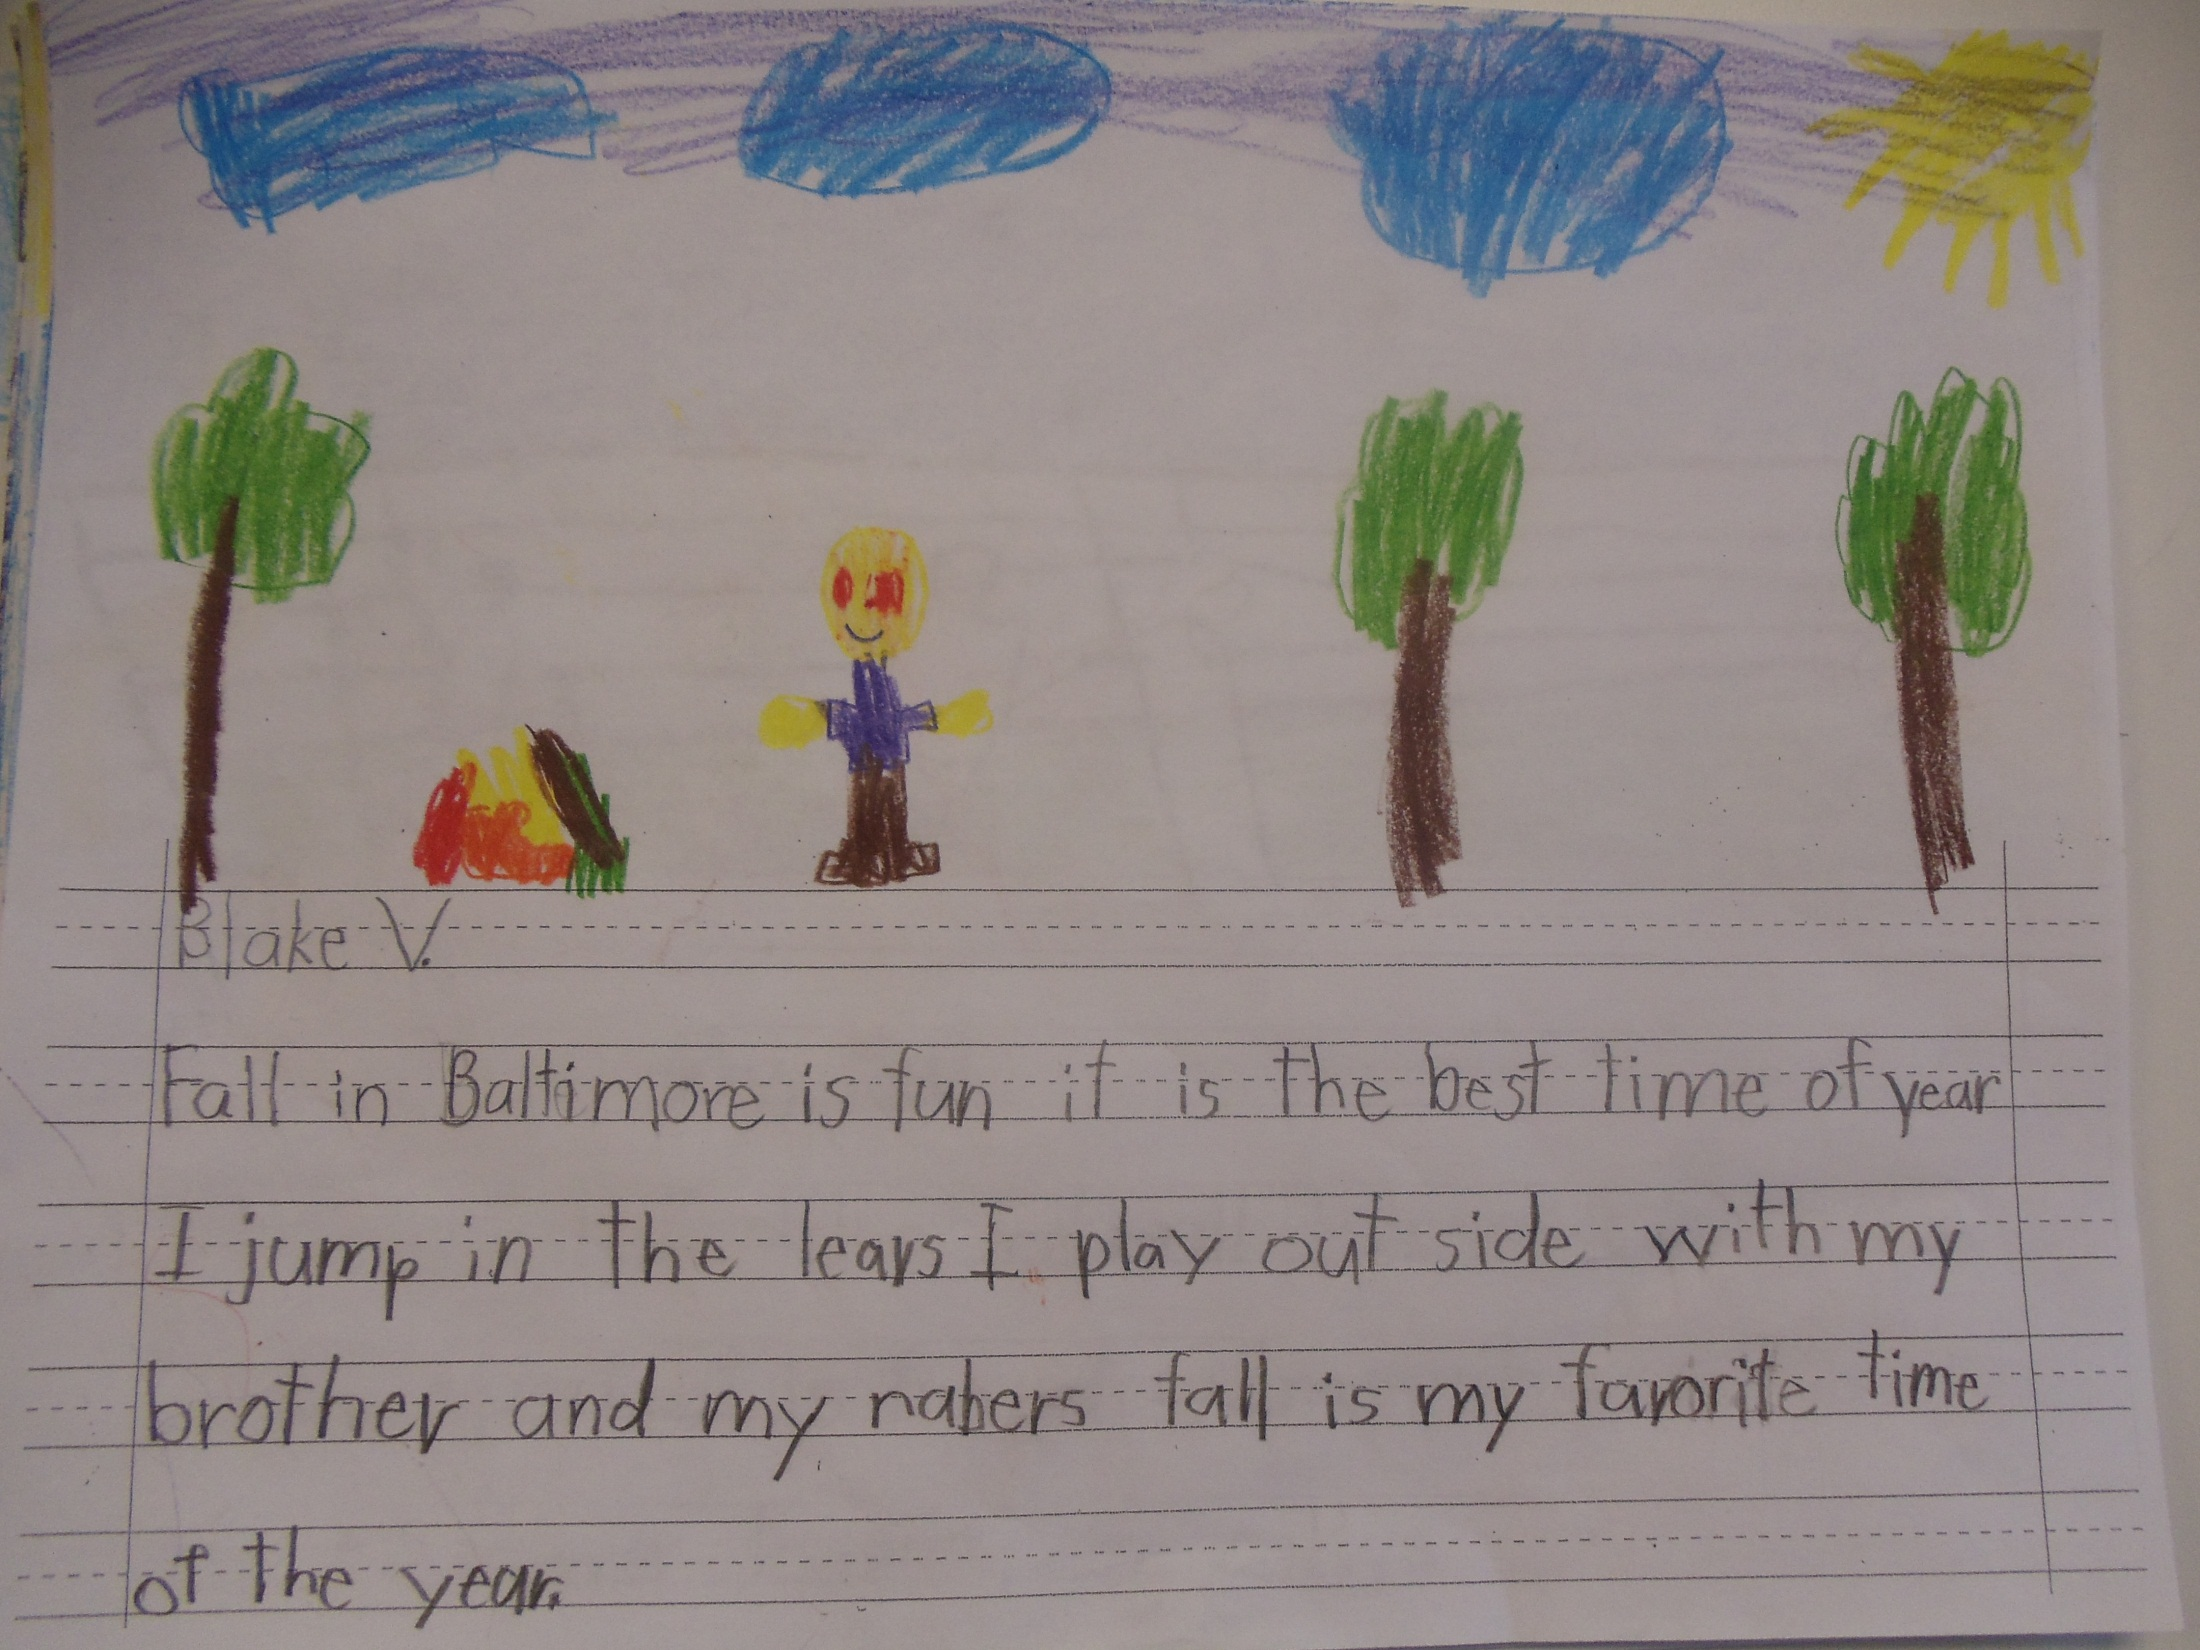 Blake V.
Fall in Baltimore is fun it is the best time of year
I jump in the leavs I play out side with my
brother and my nabers fall is my favorite time
of the year.